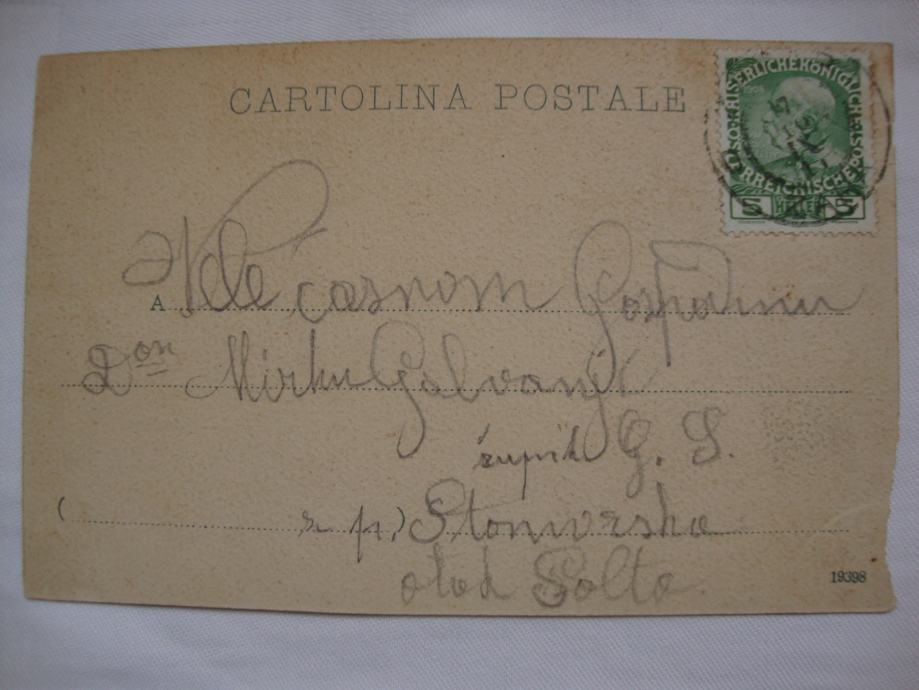 CARTOLINA POSTALE
KAISERLICHE KÖNIGLICHE ÖSTERREICHISCHE POST
1908
5 HELLER 5
A Vele časnom Gospodinu
Don Mirku Galvanji
župnik G. S.
( z. p.) Stomorska
otok Šolta
19398